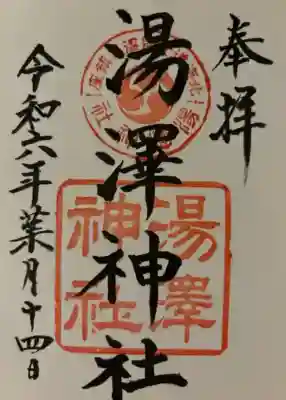 奉拝
湯澤神社
令和六年葉月十四日
湯澤
神社